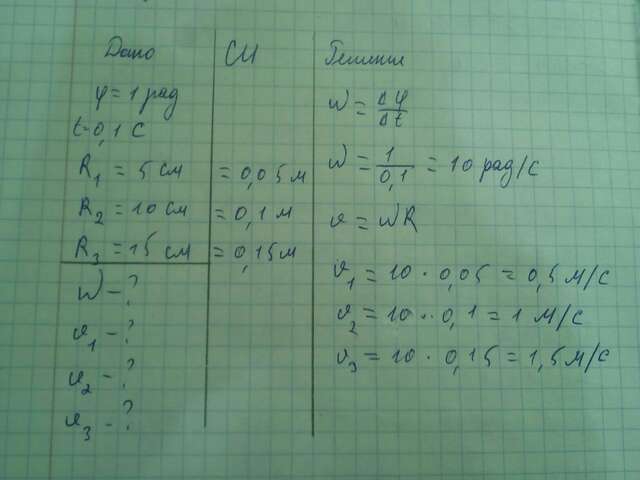 Дано
φ = 1 рад
t=0,1 с
R₁ = 5 см
R₂ = 10 см
R₃ = 15 см
ω - ?
υ₁ - ?
υ₂ - ?
υ₃ - ?
СИ
= 0,05 м
= 0,1 м
= 0,15 м
Решение
ω = Δφ/Δt
ω = 1/0,1 = 10 рад/с
υ = ωR
υ₁ = 10 · 0,05 = 0,5 м/с
υ₂ = 10 · 0,1 = 1 м/с
υ₃ = 10 · 0,15 = 1,5 м/с